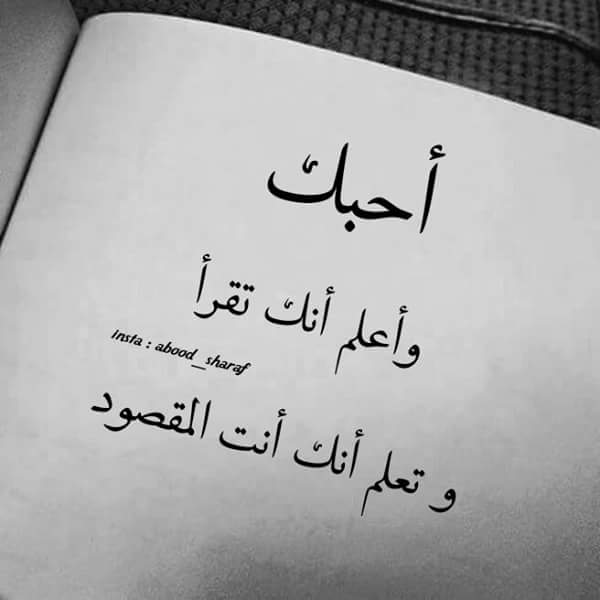 أحبك
وأعلم أنك تقرأ
insta : abood_sharaf
و تعلم أنك أنت المقصود